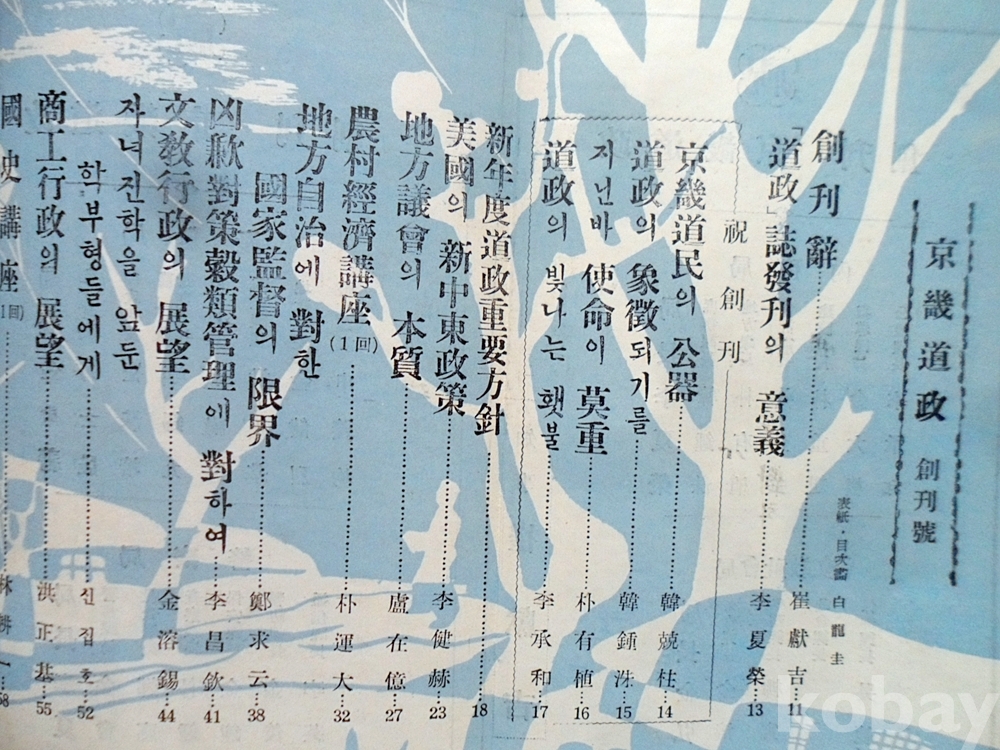 京畿道政 創刊號
表紙・目次畵 白龍圭
創刊辭 崔獻吉 11
「道政」誌發刊의 意義 李夏榮 13
祝創刊
京畿道民의 公器 韓兢柱 14
道政의 象徵되기를 韓鍾洙 15
지닌바 使命이 莫重 朴有植 16
道政의 빛나는 횃불 李承和 17
新年度道政重要方針 18
美國의 新中東政策 李健赫 23
地方議會의 本質 盧在億 27
農村經濟講座(1回) 朴運大 32
地方自治에 對한
國家監督의 限界 鄭求云 38
凶歉對策穀類管理에 對하여 李昌欽 41
文敎行政의 展望 金溶錫 44
자녀진학을 앞둔
학부형들에게 신집호 52
商工行政의 展望 洪正基 55
國史講座(1回) 林 58
kobay